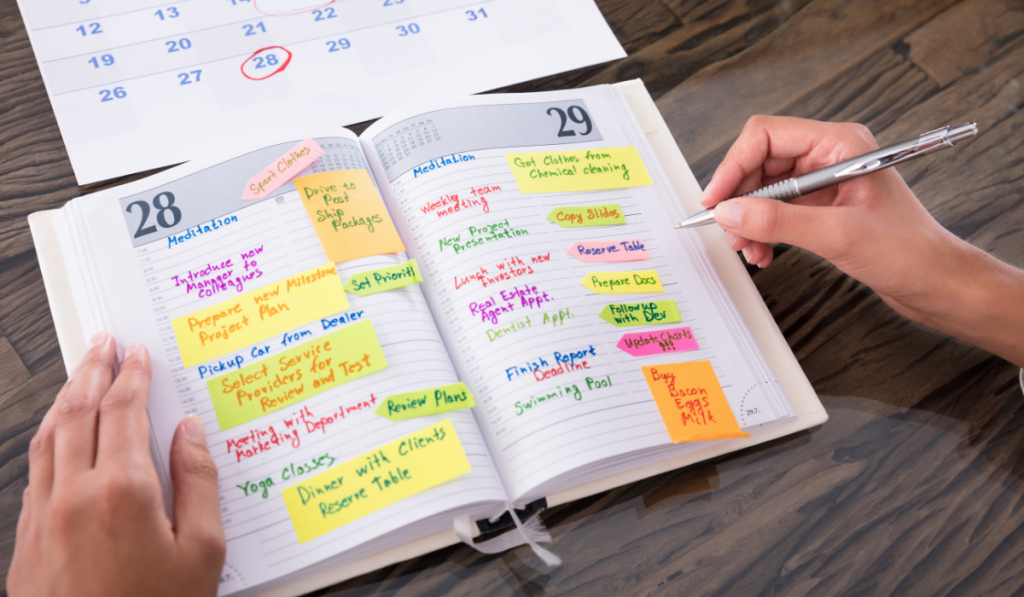 12 13 22
19 20 21 29 30 31
26 27 28
28
Sport Clothes
Meditation
Drive to
Post
Ship
Packages
Introduce new
Manager to
colleagues
Set Priority
Prepare new Milestone
Project Plan
Pickup Car from Dealer
Select Service
Providers for
Review and Test
Review Plans
Meeting with
Marketing Department
Yoga Classes
Dinner with Clients
Reserve Table
29
Meditation
Get Clothes from
Chemical cleaning
Weekly team
meeting
Copy Slides
New Project
Presentation
Reserve Table
Lunch with new
Investors
Prepare Docs
Real Estate
Agent Appt.
Follow up
with Dev
Dentist Appt.
Update Charts
!!!
Finish Report
Deadline
Buy
Bacon
Eggs
Milk
Swimming Pool
29.7.